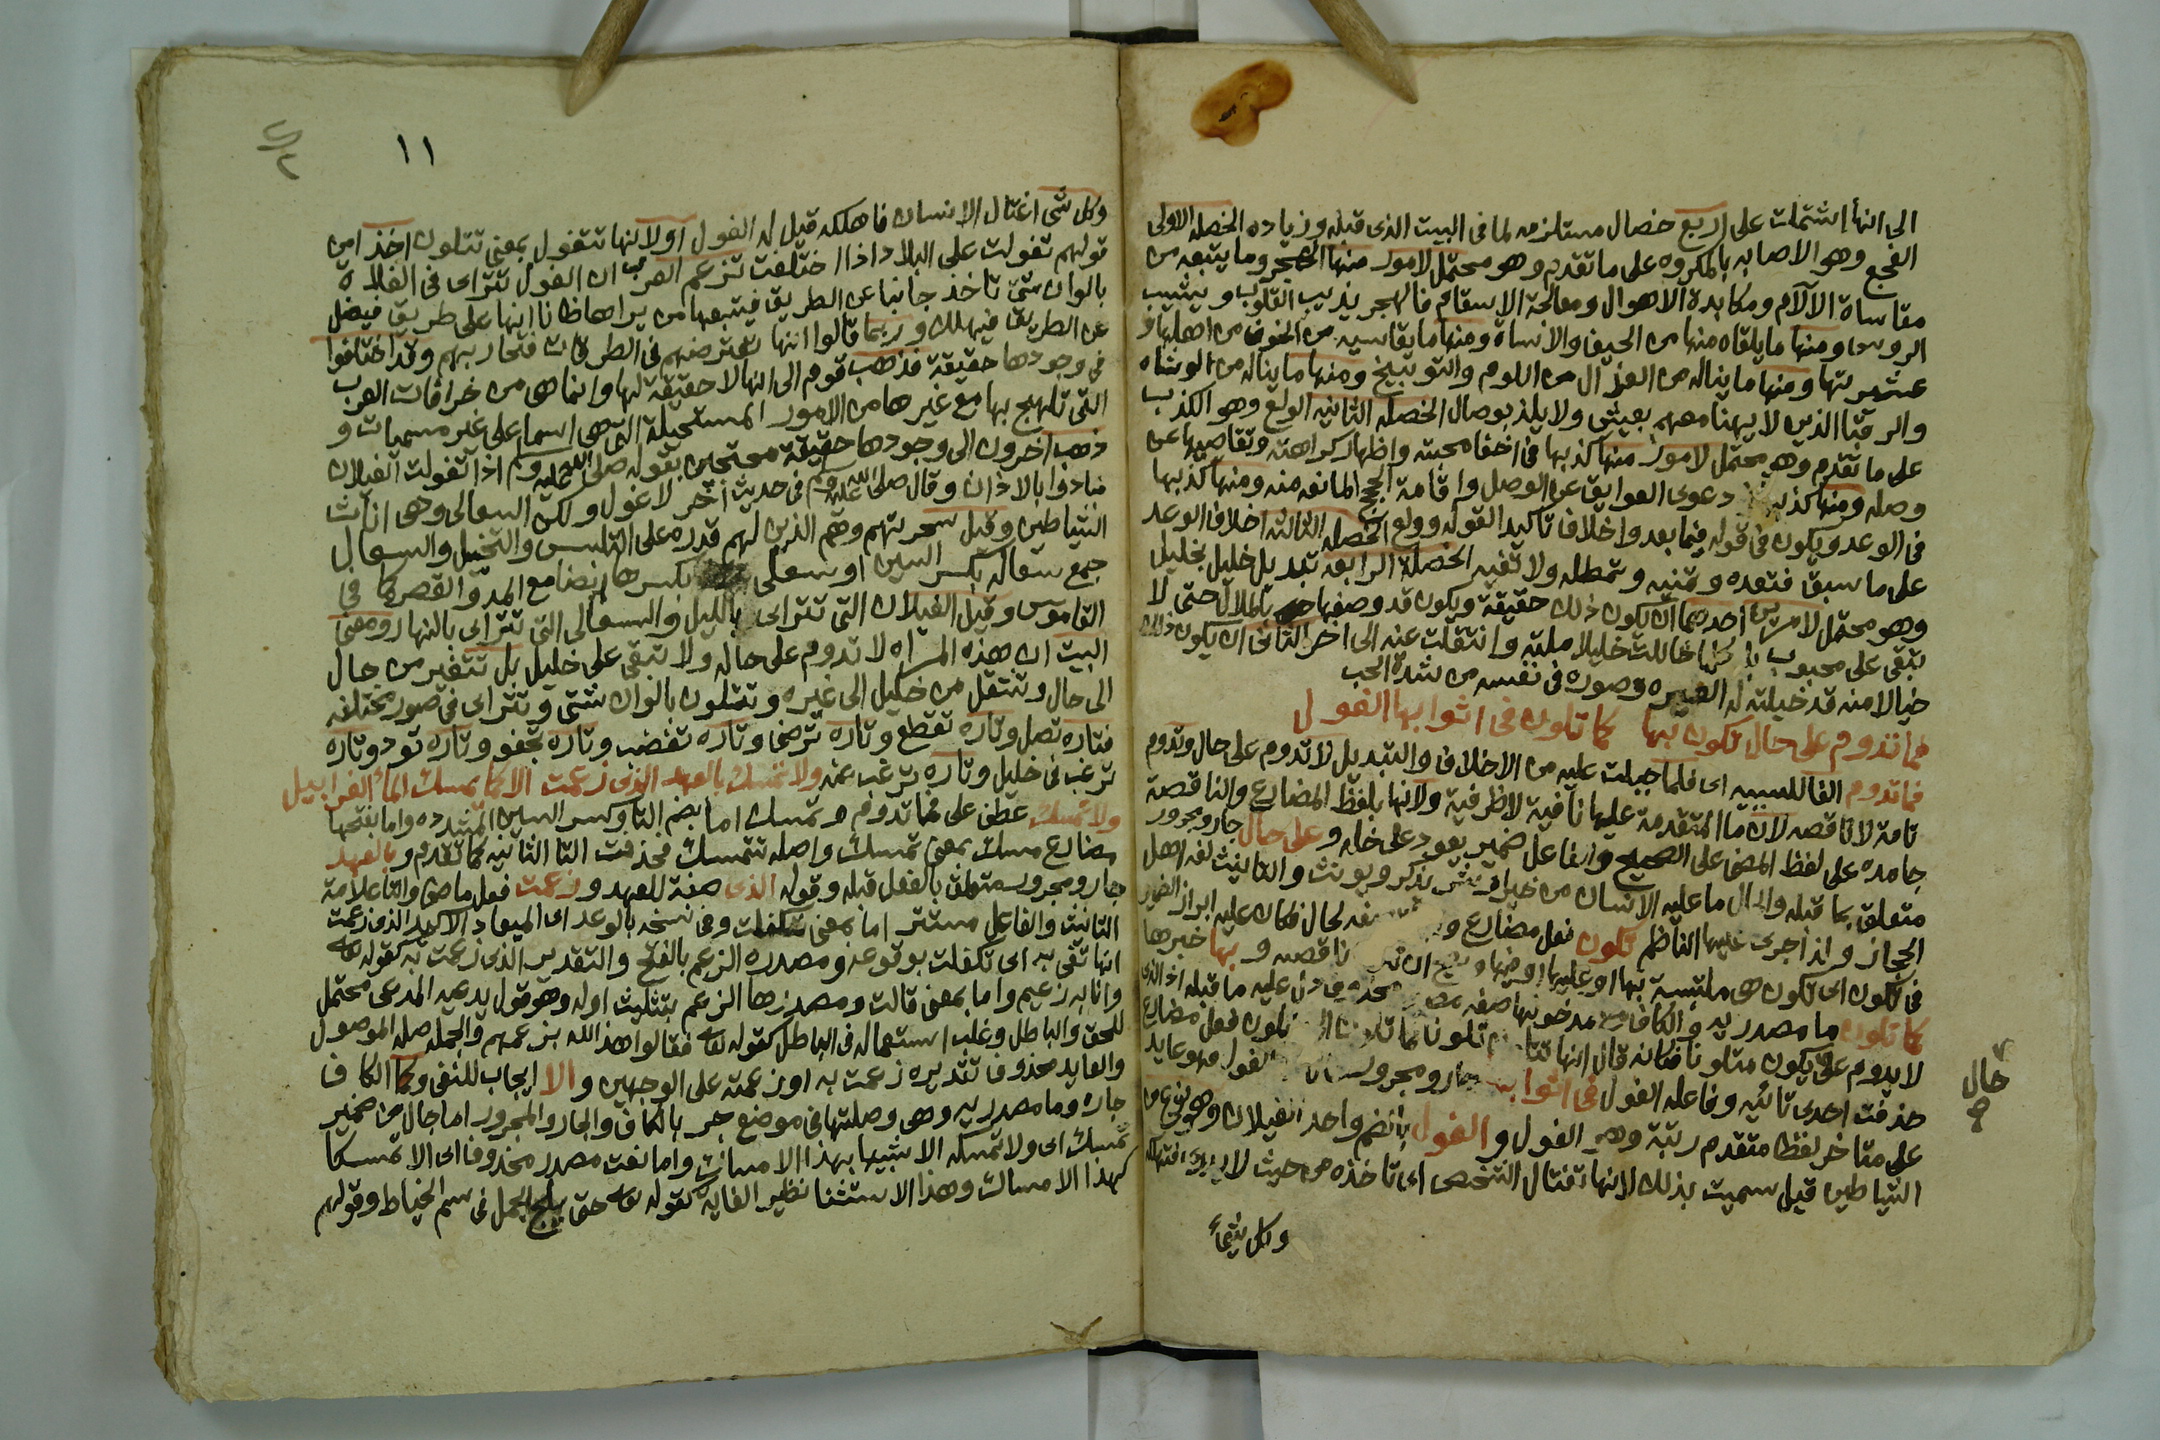 الى انها اشتملت على اربع خصال مستلزمه لما فى البيت الذى قبله وزياده الخصله الاولى
الفجع وهو الاصابه بالمكروه على ما تقدم وهو محتمل لامور منها الهجر وما يتبعه من
مقاساة الآلام ومكابدة الاهوال ومعالجة الاسقام فالهجر يذيب القلوب ويشيب
الروس ومنها ما يلقاه منها من الحيف والاساة ومنها ما يقاسيه من الخوف من اهلها و
عشيرتها ومنها ما يناله من العذال من اللوم والتوبيخ ومنها ما يناله من الوشاه
والرقبا الذين لا يهنا معهم بعيش ولا يلذ بوصال الخصله الثانيه الولع وهو الكذب
على ما تقدم وهو محتمل لامور منها كذبها فى اخفا محبته واظهار كراهته وتقاصيها عن
وصله ومنها كذبها دعوى العوايق عن الوصل واقامة الحجج المانعه منه ومنها كذبها
فى الوعد ويكون فى قوله فيما بعد واخلاف تاكيد القوله وولع الخصله الثالثه اخلاف الوعد
على ما سبق فتعده وتمنيه وتمطله ولا تفيه الخصلة الرابعه تبديل خليل بخليل
وهو محتمل لامرين احدهما ان يكون ذلك حقيقة ويكون قد وصفها بالملال حتى لا
تبقى على محبوب بل كلما خاللت خليلا ملته وانتقلت عنه الى اخر الثانى ان يكون ذلك
خيالا منه قد خيلته له الغيره وصوره فى نفسه من شدة الحب
فما تدوم على حال تكون بها كما تلون فى اثوابها الغول
فما تدوم الفا للسببيه اى فلما جبلت عليه من الاخلاف والتبديل لا تدوم على حال وتدوم
تامة لا ناقصه لان ما المتقدمة عليها نافية لا ظرفية ولانها بلفظ المضارع والناقصة
جامده على لفظ المضى على الصحيح وفاعل ضمير يعود على خله وعلى حال جار ومجرور
متعلق بما قبله والحال ما عليه الانسان من خير او شر يذكر ويونث والتانيث لغه اهل
الحجاز واذا جرى عليها الناظم تكون فعل مضارع صفه لحال فكان عليه ابراز الضمير
فى تكون اى تكون هى ملتبسة بها او عليها او فيها ناقصه وبها خبرها
كما تلون ما مصدريه والكاف مع مدخولها صفه محذوف دل عليه ما قبله اذ الذى
لا يدوم على يكون متلونا فكانه قال انها تلونا كما تلون تلون فعل مضارع
حذفت احدى تائيه وفاعله الغول فى اثوابها جار ومجرور الغول فهو عايد
على متاخر لفظا متقدم رتبة وهو الغول والغول بالضم واحد الغيلان وهو نوع من
الشياطين قيل سميت بذلك لانها تغتال الشخص اى تاخذه من حيث لا يدرى فتهلكه
وكل شئ
حال
صح
١١
وكل شئ اغتال الانسان فاهلكه قيل له الغول او لانها تتغول بمعنى تتلون اخذا من
قولهم تغولت على البلاد اذا اختلفت تزعم العرب ان الغول تتراى فى الفلاة
بالوان شتى تاخذ جانبا عن الطريق فيتبعها من يراها ظانا انها على طريق فيضل
عن الطريق فيهلك وربما قالوا انها تعترضهم فى الطرقات فتحاربهم وقد اختلفوا
فى وجودها حقيقة فذهب قوم الى انها لا حقيقة لها وانما هى من خرافات العرب
التى تلهج بها مع غيرها من الامور المستحيلة التى هى اسما على غير مسميات و
ذهب اخرون الى وجودها حقيقة محتجين بقوله صلى الله عليه وسلم اذا تغولت الغيلان
فنادوا بالاذان وقال صلى الله عليه وسلم فى حديث اخر لا غول ولكن السعالى وهى اناث
الشياطين وقيل سحرتهم وهم الذين لهم قدرة على التلبس والتخيل والسعالى
جمع سعاله بكسر السين او سعلى بكسرها ايضا مع المد والقصر كما فى
القاموس وقيل الغيلان التى تتراى بالليل والسعالى التى تتراى بالنهار ومعنى
البيت ان هذه المراه لا تدوم على حاله ولا تبقى على خليل بل تتغير من حال
الى حال وتنتقل من خليل الى غيره وتتلون بالوان شتى وتتراى فى صور مختلفه
فتاره تصل وتاره تقطع وتاره ترضى وتاره تغضب وتاره تجفو وتاره تود وتاره
ترغب فى خليل وتاره ترغب عنه ولا تمسك بالعهد الذى زعمت الا كما يمسك الما الغرابيل
ولا تمسك عطف على فما تدوم وتمسك اما بضم التا وكسر السين المشدده واما بفتحها
مضارع مسك بمعنى تمسك واصله تتمسك فحذفت التا الثانيه كما تقدم وبالعهد
جار ومجرور متعلق بالفعل قبله وقوله الذى صفة للعهد وزعمت فعل ماض والتا علامة
التانيث والفاعل مستتر اما بمعنى تكفلت وفى نسخه بالوعد اى الميعاد الاكيد الذى زعمت
انها تفى به اى تكفلت بوقوعه ومصدره الزعم بالفتح والتقدير الذى زعمت به كقوله تعالى
وانا به زعيم واما بمعنى قالت ومصدرها الزعم بتثليث اوله وهو قول يدعيه المدعى محتمل
للحق والباطل وغلب استعماله فى الباطل كقوله تعالى فقالوا هذا لله بزعمهم والجمله صله الموصول
والعايد محذوف تقديره زعمت به او زعمته على الوجهين والا ايجاب للنفى وكما الكاف
جاره وما مصدريه وهى وصلتها فى موضع جر بالكاف والجار والمجرور اما حال من ضمير
تمسك اى ولا تمسكه الا شبيها بهذا الامساك واما نعت مصدر محذوف اى الا تمسكا
كهذا الامساك وهذا الاستثنا نظير الغايه كقوله تعالى حتى يلج الجمل فى سم الخياط وقولهم